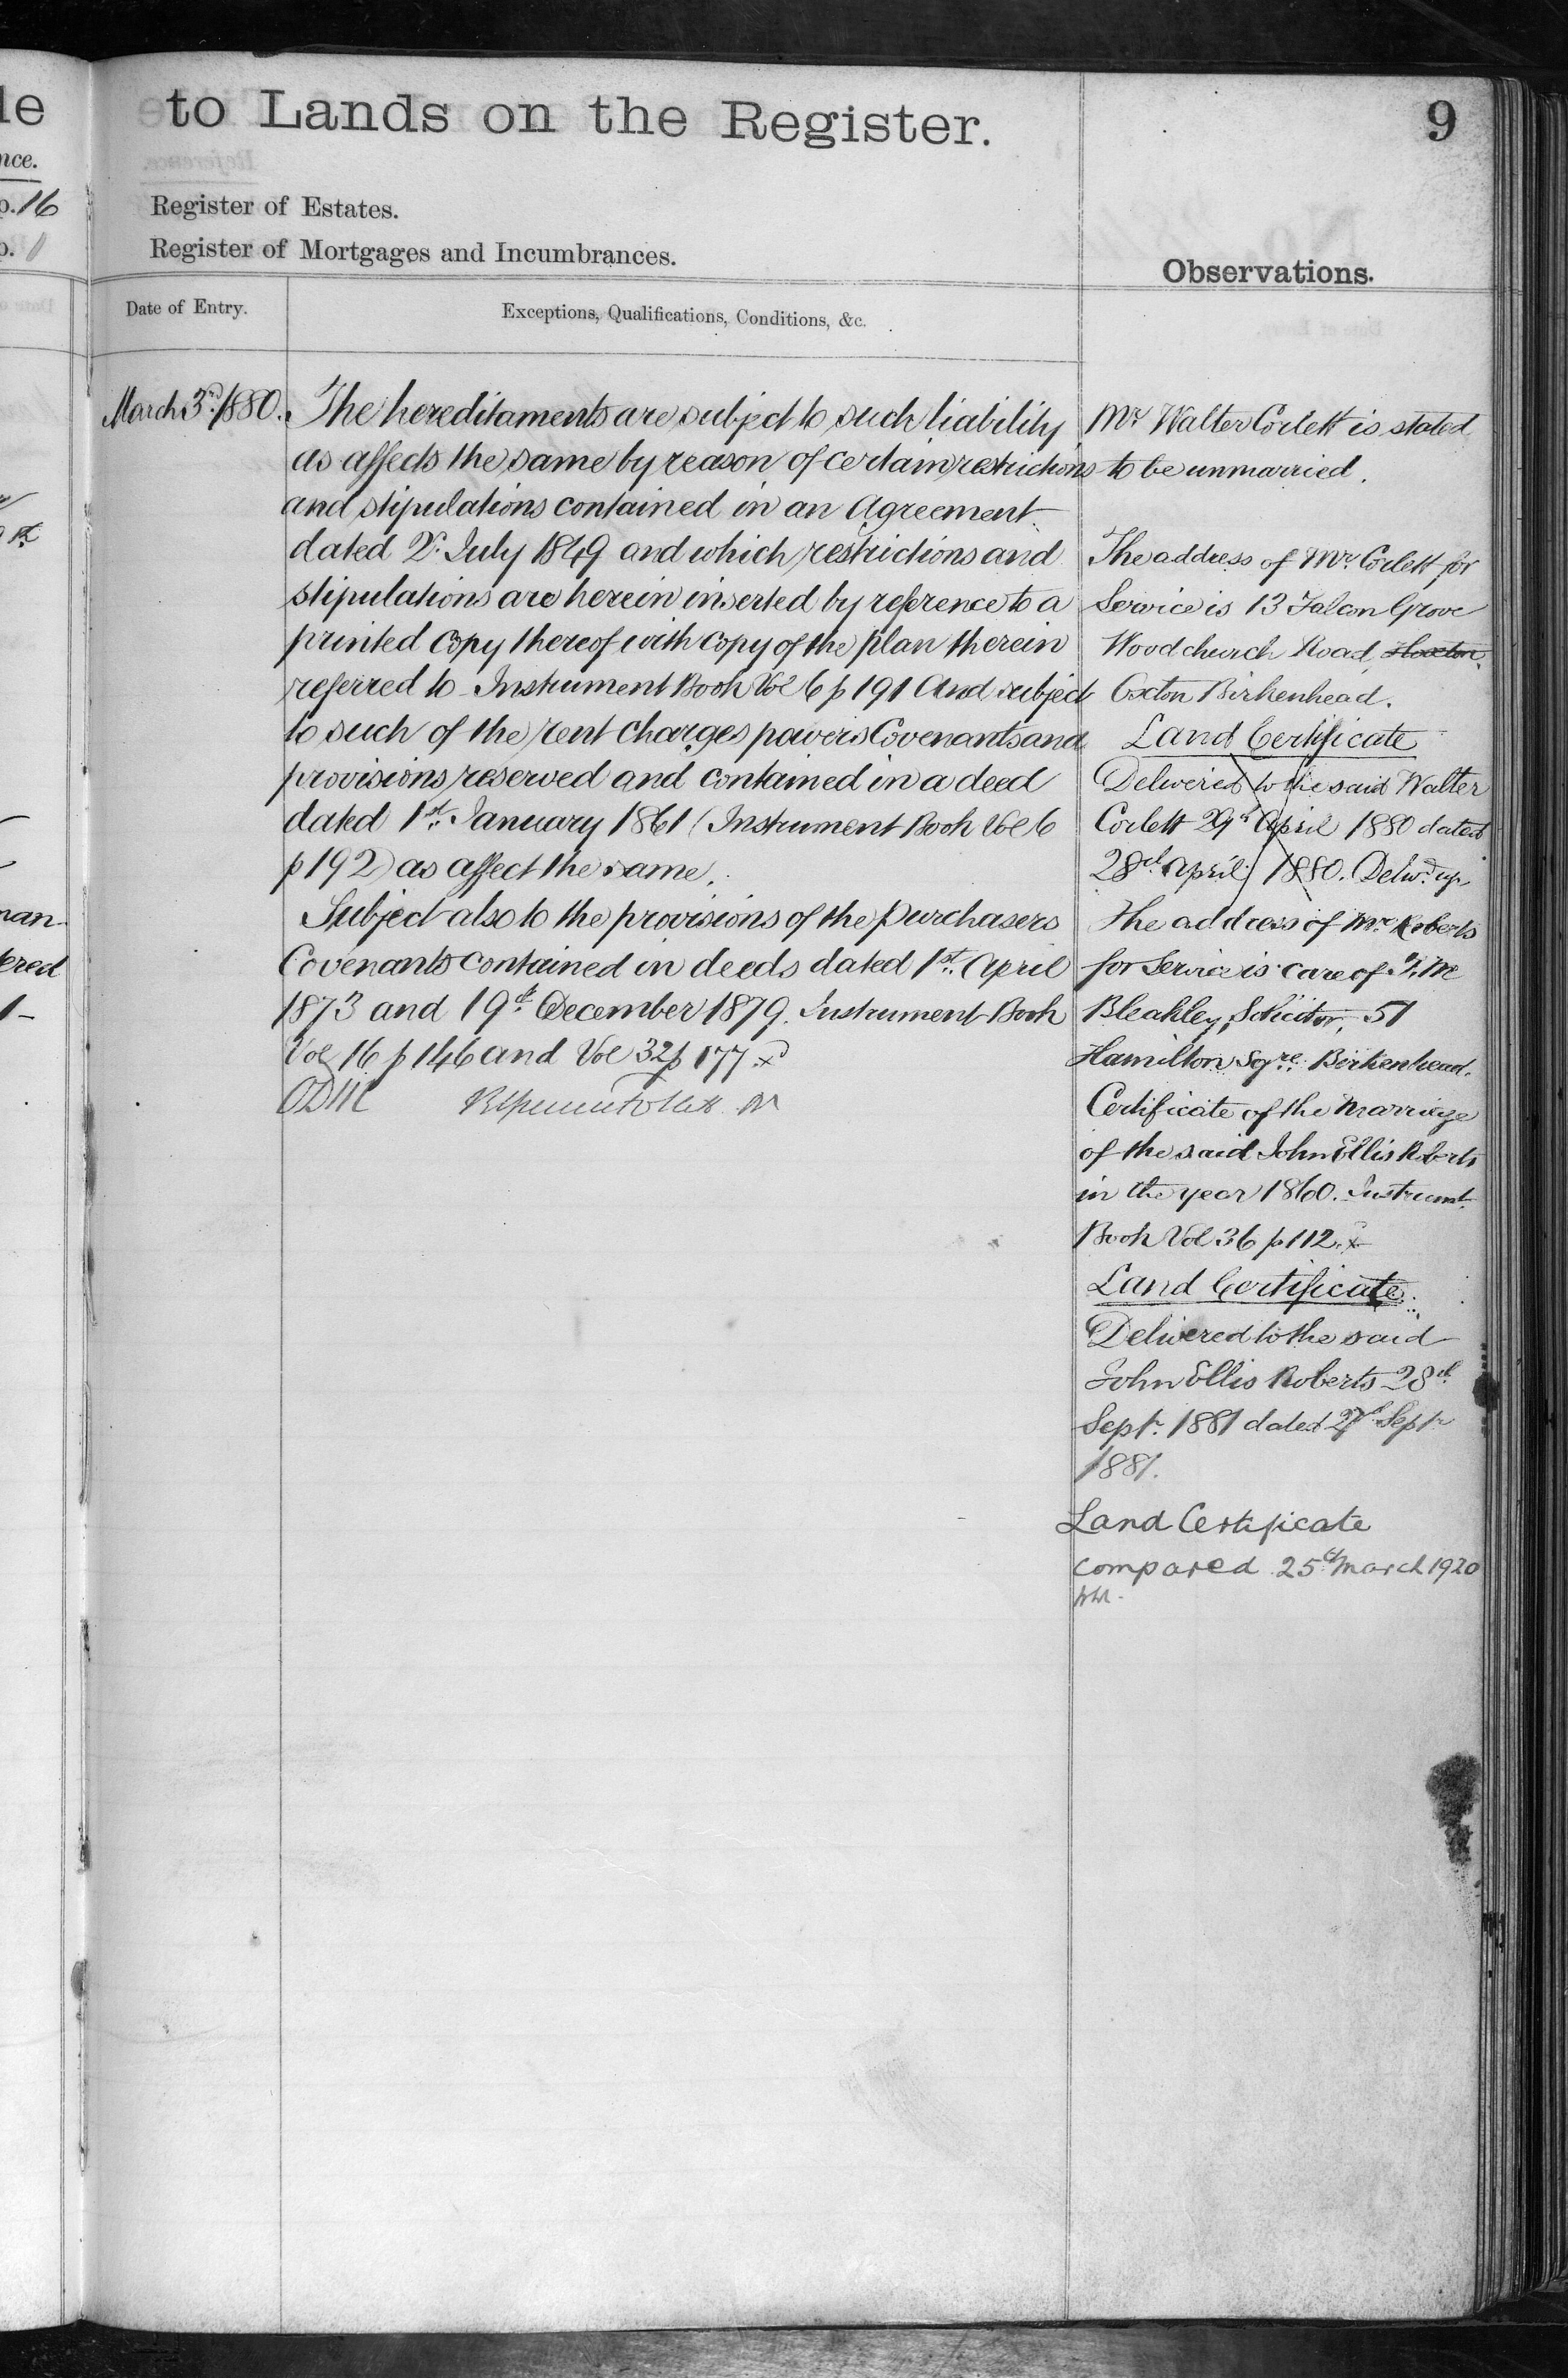 to Lands on the Register.
9
Register of Estates.
Register of Mortgages and Incumbrances.
Observations.
Date of Entry.
Exceptions, Qualifications, Conditions, &c.
March 3rd 1880.
The hereditaments are subject to such liability
as affects the same by reason of certain restrictions
and stipulations contained in an Agreement
dated 2d. July 1849 and which restrictions and
stipulations are herein inserted by reference to a
printed copy thereof with copy of the plan therein
referred to Instrument Book Vol 6 p 191 And subject
to such of the rent charges powers Covenants and
provisions reserved and contained in a deed
dated 1st. January 1861 (Instrument Book Vol 6
p 192) as affect the same.
Subject also to the provisions of the purchasers
Covenants contained in deeds dated 1st. April
1873 and 19th December 1879. Instrument Book
Vol 16 p 146 and Vol 32 p 177 xd
Mr Walter Corlett is stated
to be unmarried.
The address of Mr. Corlett for
Service is 13 Falcon Grove
Woodchurch Road, Hoxton
Oxton Birkenhead.
Land Certificate
Delivered to the said Walter
Corlett 29th April 1880 dated
28th April 1880. Delivd. up
The address of Mr. Roberts
for Service is care of T. M
Bleakley, Solicitor, 51
Hamilton Sqre. Birkenhead.
Certificate of the Marriage
of the said John Ellis Roberts
in the year 1860. Instrumt.
Book Vol 36 p 112. x
Land Certificate
Delivered to the said
John Ellis Roberts 28th
Sept. 1881 dated 27th Sept.
1881.
Land Certificate
compared 25th March 1920